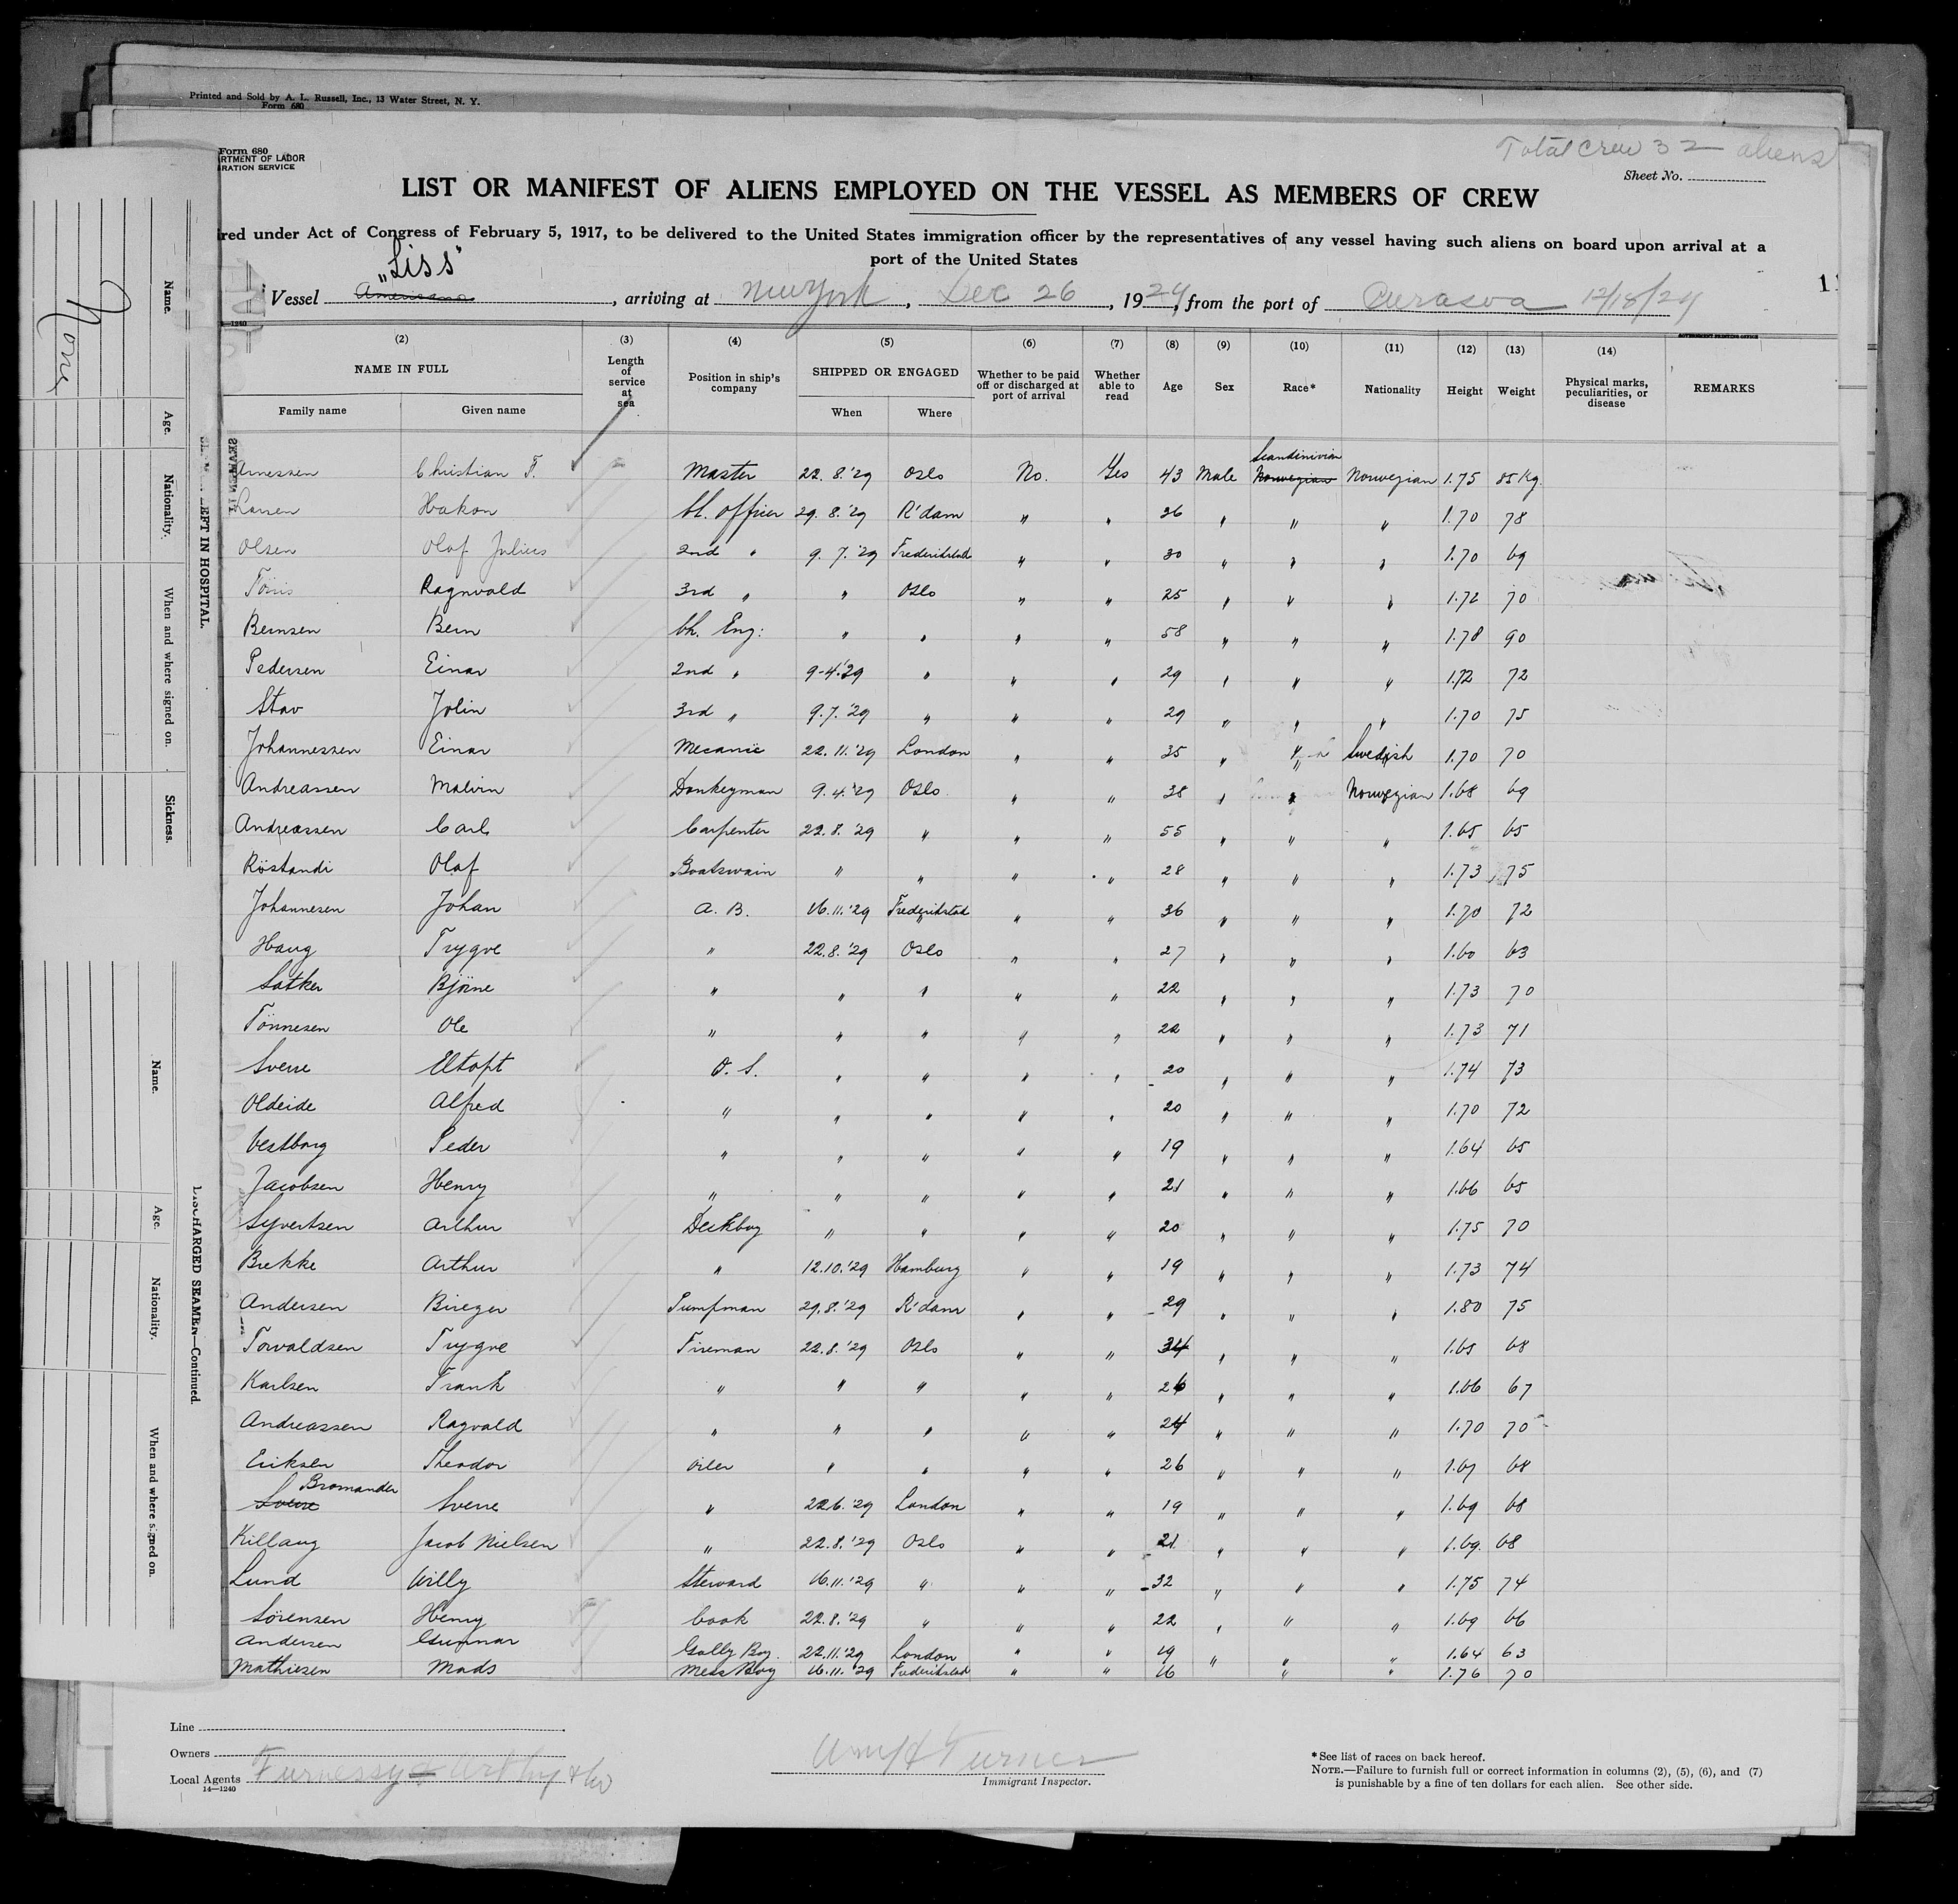 Printed and Sold by A. L. Russell, Inc., 13 Water Street, N. Y.
Form 680
Form 680
RTMENT OF LABOR
RATION SERVICE
Total Crew 32 aliens
Sheet No.
LIST OR MANIFEST OF ALIENS EMPLOYED ON THE VESSEL AS MEMBERS OF CREW
red under Act of Congress of February 5, 1917, to be delivered to the United States immigration officer by the representatives of any vessel having such aliens on board upon arrival at a
port of the United States
"Liss"
Vessel Americana, arriving at New York, Dec 26, 1929, from the port of Curasoa 12/18/29
1
(2) (3) (4) (5) (6) (7) (8) (9) (10) (11) (12) (13) (14)
NAME IN FULL Length of service at sea Position in ship's company SHIPPED OR ENGAGED Whether to be paid off or discharged at port of arrival Whether able to read Age Sex Race* Nationality Height Weight Physical marks, peculiarities, or disease REMARKS
Family name Given name When Where
Scandinivian
Arnessen Christian F. Master 22.8.'29 Oslo No. Yes 43 Male Norwegian Norwegian 1.75 85 Kg.
Larsen Hakon Ch. Officer 29.8.'29 R'dam " " 36 " " " 1.70 78
Olsen Olaf Julius 2nd " 9.7.'29 Frederikstad " " 30 " " " 1.70 69
Ragnvald 3rd " " Oslo " " 25 " " " 1.72 70
Bernsen Bern Ch. Eng: " " " " 58 " " " 1.78 90
Pedersen Einar 2nd " 9-4.'29 " " " 29 " " " 1.72 72
Stav Jolin 3rd " 9.7.'29 " " " 29 " " " 1.70 75
Johannessen Einar Mecanic 22.11.'29 London " " 35 " " Swedish 1.70 70
Andreassen Malvin Donkeyman 9.4.'29 Oslo " " 38 " " Norwegian 1.68 69
Andreassen Carl Carpenter 22.8.'29 " " " 55 " " " 1.65 65
Röstandi Olaf Boatswain " " " " 28 " " " 1.73 75
Johannesen Johan A. B. 16.11.'29 Frederikstad " " 36 " " " 1.70 72
Haug Trygve " 22.8.'29 Oslo " " 27 " " " 1.60 63
Satker Björne " " " " " 22 " " " 1.73 70
Tönnesen Ole " " " " " 22 " " " 1.73 71
Sverre Eltoft O. S. " " " " 20 " " " 1.74 73
Oldeide Alfred " " " " " 20 " " " 1.70 72
Vestborg Peder " " " " " 19 " " " 1.64 65
Jacobsen Henry " " " " " 21 " " " 1.66 65
Syvertsen Arthur Deckboy " " " " 20 " " " 1.75 70
Brekke Arthur " 12.10.'29 Hamburg " " 19 " " " 1.73 74
Andersen Birger Pumpman 29.8.'29 R'dam " " 29 " " " 1.80 75
Torvaldsen Trygve Fireman 22.8.'29 Oslo " " 34 " " " 1.65 68
Karlsen Frank " " " " " 26 " " " 1.66 67
Andreassen Ragvald " " " " " 24 " " " 1.70 70
Eriksen Theodor Oiler " " " " 26 " " " 1.67 68
Bromander
Sverre Sverre " 22.6.'29 London " " 19 " " " 1.69 68
Killaug Jacob Nielsen " 22.8.'29 Oslo " " 21 " " " 1.69 68
Lund Willy Steward 16.11.'29 " " " 32 " " " 1.75 74
Sørensen Henry Cook 22.8.'29 " " " 22 " " " 1.69 66
Andersen Gunnar Gally Boy. 22.11.'29 London " " 19 " " " 1.64 63
Mathiesen Mads Mess Boy 16.11.'29 Frederikstad " " 16 " " " 1.76 70
Line
Owners
Local Agents
14—1240
Wm H Turner
Immigrant Inspector.
*See list of races on back hereof.
NOTE.—Failure to furnish full or correct information in columns (2), (5), (6), and (7)
is punishable by a fine of ten dollars for each alien. See other side.
None
Name.
Age.
Nationality.
When and where signed on.
Sickness.
LEFT IN HOSPITAL.
Name.
Age.
Nationality.
When and where signed on.
DISCHARGED SEAMEN—Continued.